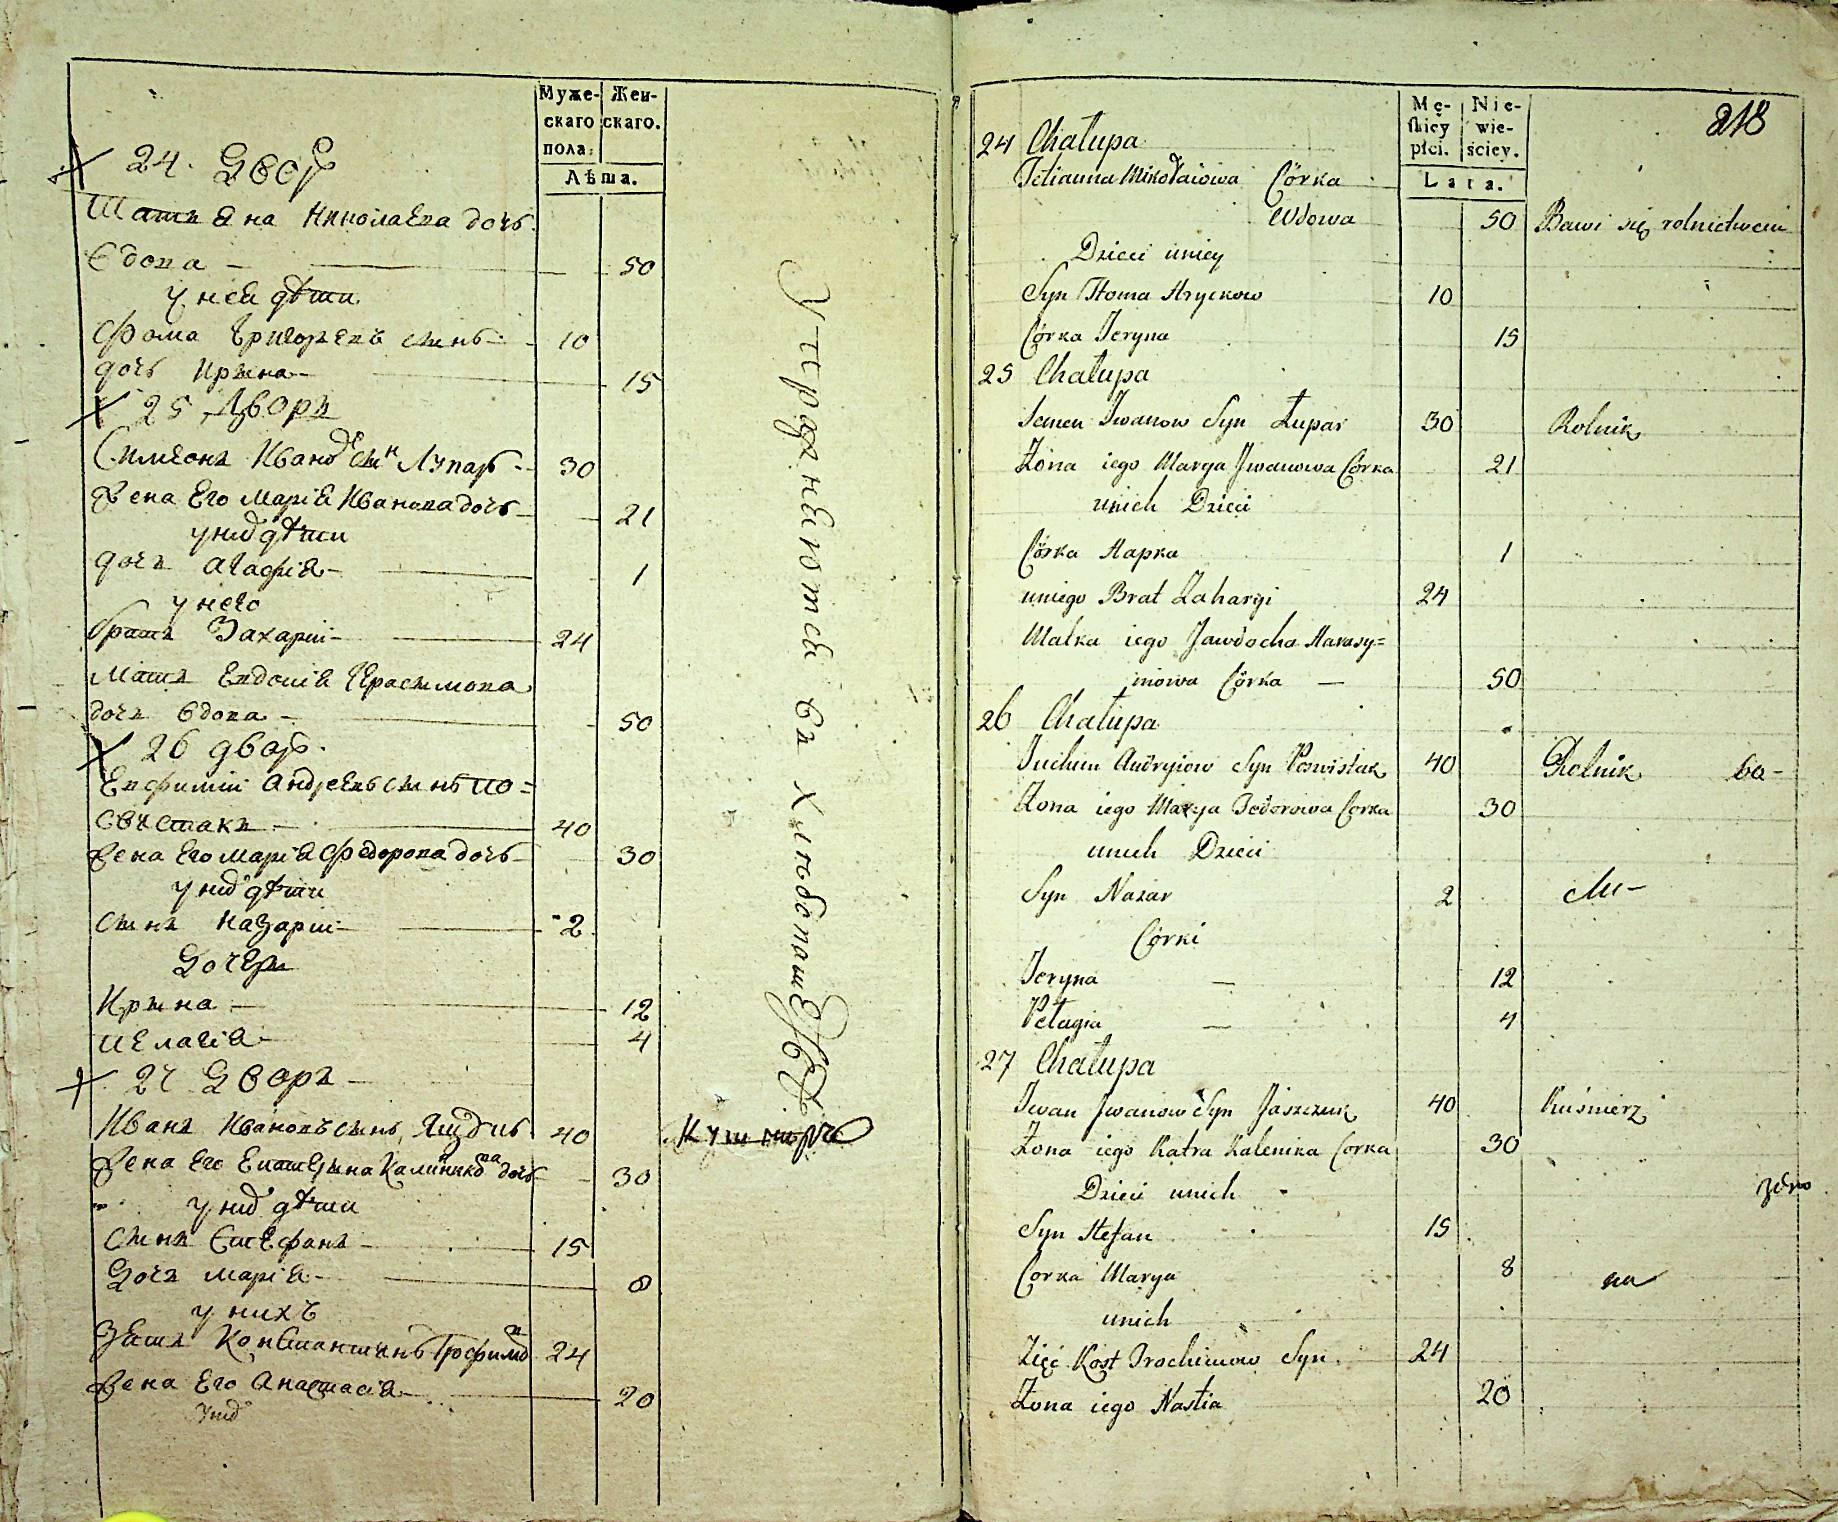 Муже- Жен-
скаго скаго.
пола.
Лѣта.
24. Двор
Татиана Николаева дочь
вдова — 50
у нея дѣти
Фома Григорьевъ сынъ — 10
дочь Ирина — 15
25 Дворъ
Симеонъ Иванов сын Лупарь — 30
Жена Его Марія Иванова дочь — 21
у них дѣти
дочь Агафія — 1
у него
братъ Захарій — 24
Мать Евдокія Герасимова
дочь вдова — 50
26 двор
Евфимій Андреевъ сынъ По=
свистакъ — 40
Жена Его Марія Федорова дочь — 30
у них дѣти
сынъ Назарій — 2
Дочери
Ирина — 12
Пелагія — 4
27 Дворъ
Иванъ Ивановъ сынъ 40
Жена Его Екатерина Калиникова дочь — 30
у них дѣти
Сынъ Стефанъ — 15
Дочь Марія — 8
у нихъ
Зять Константинъ Трофимов 24
Жена Его Анастасія — 20
у них
Упражняются въ хлѣбопашествѣ
218
Mę- Nie-
skiey wie-
płci. ściey.
Lata.
24 Chałupa
Tetianna Mikołaiowa Córka
Wdowa 50 Bawi się rolnictwem
Dzieci uniey
Syn Homa Hryckow 10
Córka Jeryna 15
25 Chałupa
Semen Jwanow Syn Łupar 30 Rolnik
Żona iego Marya Jwanowa Córka 21
unich Dzieci
Córka Hapka 1
uniego Brat Zaharyi 24
Matka iego Jawdocha Harasy=
mowa Córka — 50
26 Chałupa
Juchim Andryiow Syn Poswistak 40 Rolnik ba-
Żona iego Marya Fedorowa Corka 30
unich Dzieci
Syn Nazar 2
Córki
Jeryna — 12
Pełagia — 4
27 Chałupa
Jwan Jwanow Syn Jaszczuk 40 Kuśnierz
Żona iego Katra Kalenika Corka 30
Dzieci unich
Syn Stefan 15
Corka Marya 8 na
unich
Zięć Kost Trochimow Syn 24
Żona iego Nastia 20